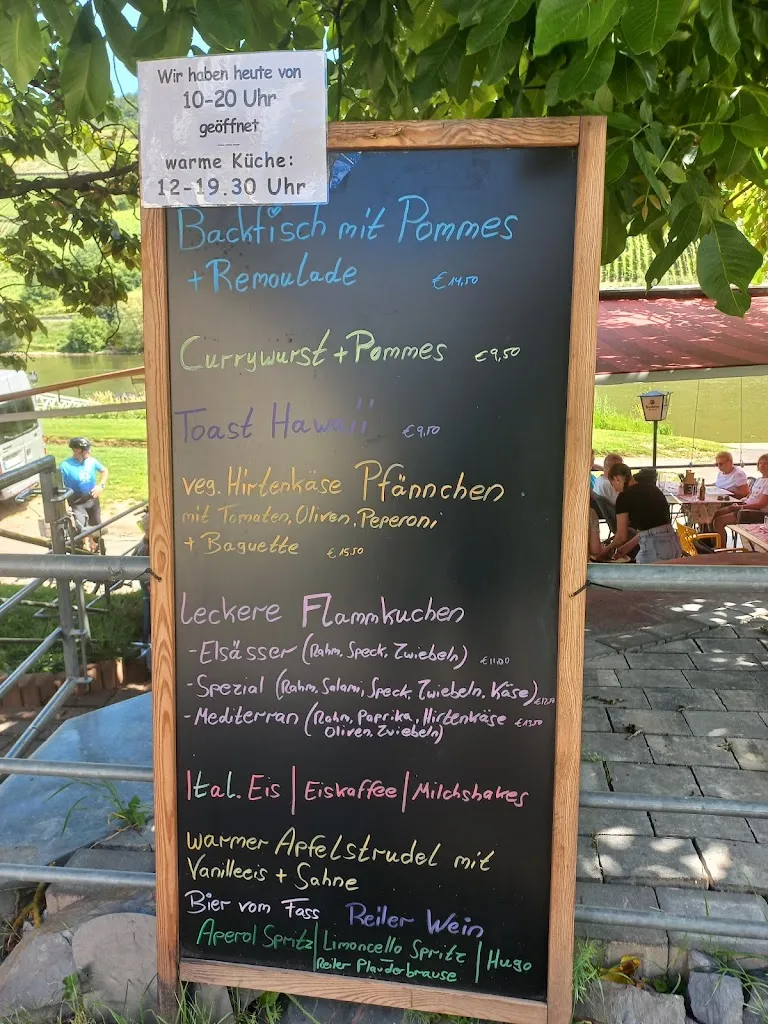 Wir haben heute von
10-20 Uhr
geöffnet
warme Küche:
12-19.30 Uhr
Backfisch mit Pommes
+ Remoulade €14,50
Currywurst + Pommes €9,50
Toast Hawaii €9,50
veg. Hirtenkäse Pfännchen
mit Tomaten, Oliven, Peperoni
+ Baguette €15,50
Leckere Flammkuchen
- Elsässer (Rahm, Speck, Zwiebeln) €11,00
- Spezial (Rahm, Salami, Speck, Zwiebeln, Käse)
- Mediterran (Rahm, Paprika, Hirtenkäse €13,50
Oliven, Zwiebeln)
Ital. Eis | Eiskaffee | Milchshakes
warmer Apfelstrudel mit
Vanilleeis + Sahne
Bier vom Fass Reiler Wein
Aperol Spritz | Limoncello Spritz | Hugo
Reiler Plauderbrause